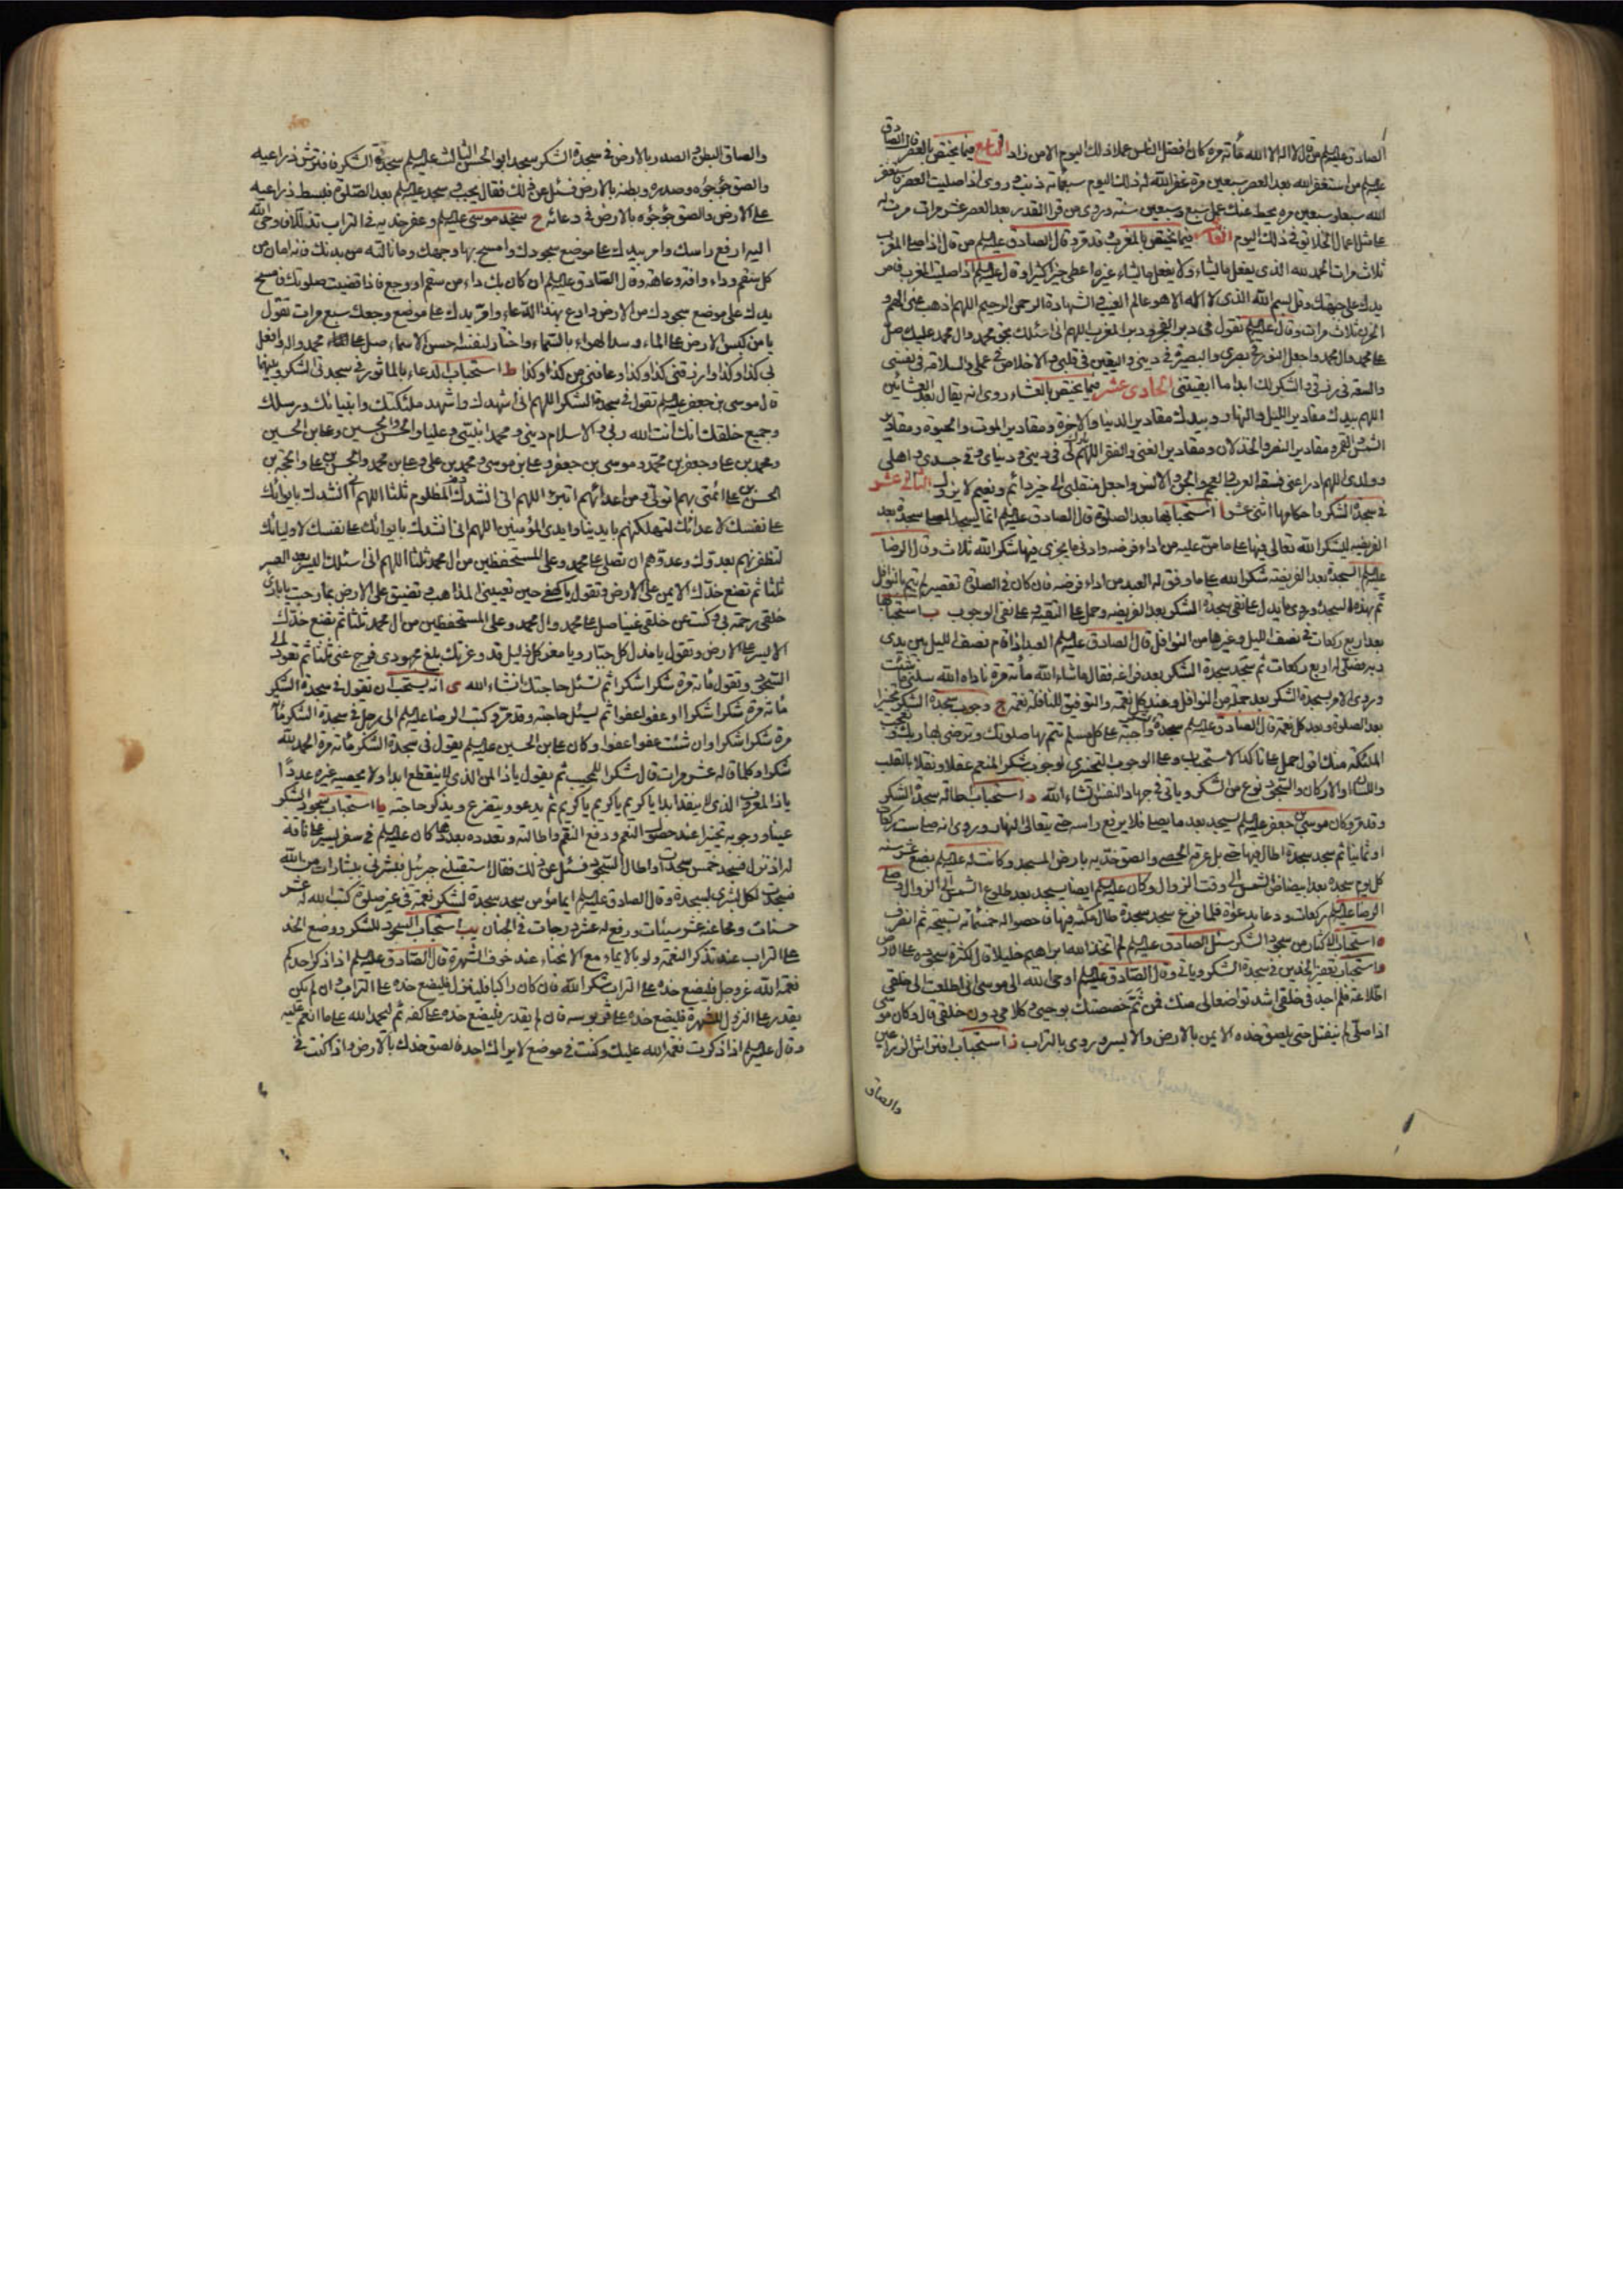 الصادق عليه السلم من قال لا اله الا الله مأته مرة كان افضل الناس عملا ذلك اليوم الا من زاد التاسع فيما يختص بالعصر قال الصادق
عليه السلم من استغفر الله بعد العصر سبعين مرة غفر الله له ذلك اليوم سبعمأته ذنب و روى اذا صليت العصر فاستغفر
الله سبعا وسبعين مره يحط عنك عمل سبع وسبعين سنه وروى من قرا القدر بعد العصر عشر مرات مرت له
على مثل اعمال الخلائق في ذلك اليوم العاشر فيما يختص بالمغرب وقد مر وقال الصادق عليه السلم من قال اذا صلى المغرب
ثلاث مرات الحمد لله الذى يفعل ما يشاء ولا يفعل ما يشاء غيره اعطى خيرا كثيرا وقال عليه السلم اذا صليت المغرب فامر
يدك على جبهتك وقل بسم الله الذى لا اله الا هو عالم الغيب والشهادة الرحمن الرحيم اللهم اذهب عنى الهم و
الحزن ثلاث مرات وقال عليه السلم تقول في دبر الفجر ودبر المغرب اللهم انى اسئلك بحق محمد وال محمد عليك صل
على محمد وال محمد واجعل النور في بصرى والبصيرة في دينى واليقين في قلبى والاخلاص في عملى والسلامة فى نفسى
والسعة فى رزقى والشكر لك ابدا ما ابقيتنى الحادى عشر فيما يختص بالعشاء روى انه يقال بعد العشائين
اللهم بيدك مقادير الليل والنهار وبيدك مقادير الدنيا والاخرة ومقادير الموت والحيوة ومقادير
الشمس والقمر ومقادير النصر والخذلان ومقادير الغنى والفقر اللهم بارك لى فى دينى و دنياى و فى جسدى و اهلى
وولدى اللهم ادراعنى فسقة العرب والعجم والجن والانس واجعل منقلبى الى خير دائم ونعيم لا يزول الثانى عشر
في سجدة الشكر واحكامها اثنى عشر ا استحبابها بعد الصلوة قال الصادق عليه السلم انما يسجد المصلى سجدة بعد
الفريضه ليشكر الله تعالى فيها على ما من عليه من اداء فرضه وادنى ما يجزى فيها شكرا لله ثلاث وقال الرضا
عليه السلم السجدة بعد الفريضة شكرا لله على ما وفق له العبد من اداء فرضه فان كان فى الصلوة تقصير لم يتم بالنوافل
تم بهذه السجدة وروى ما يدل على نفى سجدة الشكر بعد الفريضه وحمل على التقيه و على نفى الوجوب ب استحبابها
بعد اربع ركعات في نصف الليل وغيرها من النوافل قال الصادق عليه السلم العبد اذا قام نصف الليل بين يدى
ربه فصلى له اربع ركعات ثم سجد سجدة الشكر بعد فراغه فقال ما شاء الله مأته مرة ناداه الله سلنى ما شئت
وروى الامر بسجدة الشكر بعد جملة من النوافل وعند كل نعمة والتوفيق للنافلة نعمة ج وجوب سجدة الشكر تخييرا
بعد الصلوة وبعد كل نعمة قال الصادق عليه السلم سجدة الشكر واجبة على كل مسلم تتم بها صلوتك وترضى بها ربك وتعجب
الملئكة منك اقول حمل على تاكد الاستحباب وعلى الوجوب التخييرى لوجوب شكر المنعم عقلا ونقلا بالقلب
واللسان او الاركان والسجود نوع من الشكر وياتى فى جهاد النفس انشاء الله د استحباب اطالة سجدة الشكر
وقد مر وكان موسى بن جعفر عليه السلم يسجد بعد ما يصلى فلا يرفع راسه حتى يتعالى النهار وروى انه صلى ست ركعات
او ثمانيا ثم سجد سجدة اطال فيها حتى بل عرقه الحصى والصق خديه بارض المسجد وكانت له عليه السلم بضع عشر سنه
كل يوم سجدة بعد ابيضاض الشمس الى وقت الزوال وكان عليه السلم ايضا يسجد بعد طلوع الشمس الى الزوال وصلى
الرضا عليه السلم ركعات ودعا بدعوة فلما فرغ سجد سجدة طال مكثه فيها فاحصوا له خمسمأته تسبيحة ثم انصرف
ه استحباب الاكثار من سجود الشكر سئل الصادق عليه السلم لم اتخذ الله ابراهيم خليلا قال لكثرة سجوده على الارض
و استحباب تعفير الخدين في سجدة الشكر وياتى وقال الصادق عليه السلم اوحى الله الى موسى انى اطلعت الى خلقى
اطلاعة فلم اجد فى خلقى اشد تواضعا لى منك فمن ثم خصصتك بوحيى وكلامى دون خلقى قال وكان موسى
اذا صلى لم ينفتل حتى يلصق خده الايمن بالارض والايسر وروى بالتراب ز استحباب افتراش الذراعين
والصاق
والصاق البطن والصدر بالارض فى سجدة الشكر سجد ابو الحسن الثالث عليه السلم سجدة الشكر فافترش ذراعيه
والصق جؤجؤه وصدره وبطنه بالارض فسئل عن ذلك فقال يجب و سجد عليه السلم بعد الصلوة فبسط ذراعيه
على الارض والصق جؤجؤه بالارض فى دعائه ح سجد موسى عليه السلم وعفر خديه فى التراب تذللا فاوحى الله
اليه ارفع راسك وامر بيدك على موضع سجودك وامسح بها وجهك وما نالته من بدنك فانه امان من
كل سقم وداء وافة وعاهة وقال الصادق عليه السلم ان كان بك داء من سقم او وجع فاذا قضيت صلوتك فامسح
يدك على موضع سجودك من الارض وادع بهذا الدعاء وامر يدك على موضع وجعك سبع مرات تقول
يا من كبس الارض على الماء وسد الهواء بالسماء واختار لنفسه احسن الاسماء صل على محمد واله وافعل
بى كذا وكذا وارزقنى كذا وكذا وعافنى من كذا وكذا ط استحباب الدعاء بالماثور فى سجدتى الشكر وبينهما
قال موسى بن جعفر عليه السلم تقول فى سجدة الشكر اللهم انى اشهدك واشهد ملئكتك وانبيائك ورسلك
وجميع خلقك انك انت الله ربى والاسلام دينى ومحمدا نبيى وعليا والحسن والحسين وعلى بن الحسين
ومحمد بن على وجعفر بن محمد وموسى بن جعفر وعلى بن موسى ومحمد بن على وعلى بن محمد والحسن بن على والحجة بن
الحسن بن على ائمتى بهم اتولى ومن اعدائهم اتبرء اللهم انى انشدك دم المظلوم ثلثا اللهم انى انشدك بايوائك
على نفسك لاعدائك لتهلكنهم بايدينا وايدى المؤمنين اللهم انى انشدك بايوائك على نفسك لاوليائك
لتظفرنهم بعدوك وعدوهم ان تصلى على محمد وعلى المستحفظين من ال محمد ثلثا اللهم انى اسئلك اليسر بعد العسر
ثلثا ثم تضع خدك الايمن على الارض وتقول يا كهفى حين تعيينى المذاهب وتضيق على الارض بما رحبت يا بارئ
خلقى رحمة بى وكنت عن خلقى غنيا صل على محمد وال محمد وعلى المستحفظين من ال محمد ثلثا ثم تضع خدك
الايسر على الارض وتقول يا مذل كل جبار ويا معز كل ذليل قد وعزتك بلغ مجهودى ففرج عنى ثلثا ثم تعود الى
السجود وتقول مأته مرة شكرا شكرا ثم تسئل حاجتك انشاء الله ى انه يستحب ان تقول فى سجدة الشكر
مأته مرة شكرا شكرا او عفوا عفوا ثم يسئل حاجته وقد مر وكتب الرضا عليه السلم الى رجل فى سجدة الشكر مأته
مرة شكرا شكرا وان شئت عفوا عفوا وكان على بن الحسين عليه السلم يقول فى سجدة الشكر مأته مرة الحمد لله
شكرا وكلما قاله عشر مرات قال شكرا للمجيب ثم يقول يا ذا المن الذى لا ينقطع ابدا ولا يحصيه غيره عددا
يا ذا المعروف الذى لا ينفد ابدا يا كريم يا كريم يا كريم ثم يدعو ويتضرع ويذكر حاجته يا استحباب سجود الشكر
عينا ووجوبه تخييرا عند حصول النعم ودفع النقم واطالته وتعدده بعددها كان عليه السلم فى سفر يسير على ناقة
له اذ نزل فسجد خمس سجدات واطال السجود فسئل عن ذلك فقال استقبلنى جبرئيل فبشرنى ببشارات من الله
فسجدت لكل بشرى سجدة وقال الصادق عليه السلم ايما مؤمن سجد سجدة لشكر نعمة فى غير صلوة كتب الله له عشر
حسنات ومحا عنه عشر سيئات ورفع له عشر درجات فى الجنان يب استحباب السجود للشكر ووضع الخد
على التراب عند تذكر النعمة ولو بالايماء مع الانحناء عند خوف الشهرة قال الصادق عليه السلم اذا ذكر احدكم
نعمة الله عز وجل فليضع خده على التراب شكرا لله فان كان راكبا فلينزل فليضع خده على التراب وان لم يكن
يقدر على النزول للشهرة فليضع خده على قربوسه فان لم يقدر فليضع خده على كفه ثم ليحمد الله على ما انعم عليه
وقال عليه السلم اذا ذكرت نعمة الله عليك وكنت فى موضع لا يراك احد فالصق خدك بالارض واذا كنت فى